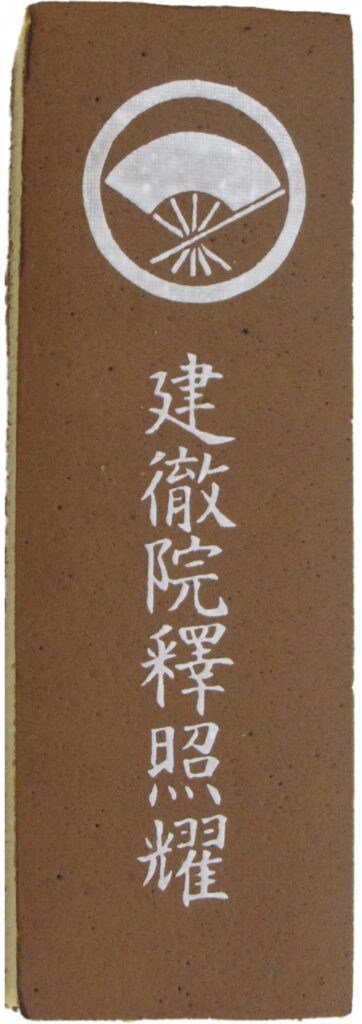 建徹院釋照耀